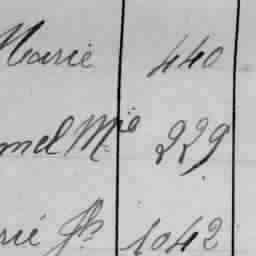 Marie 440
mel Mie 229
rié Jh 1042